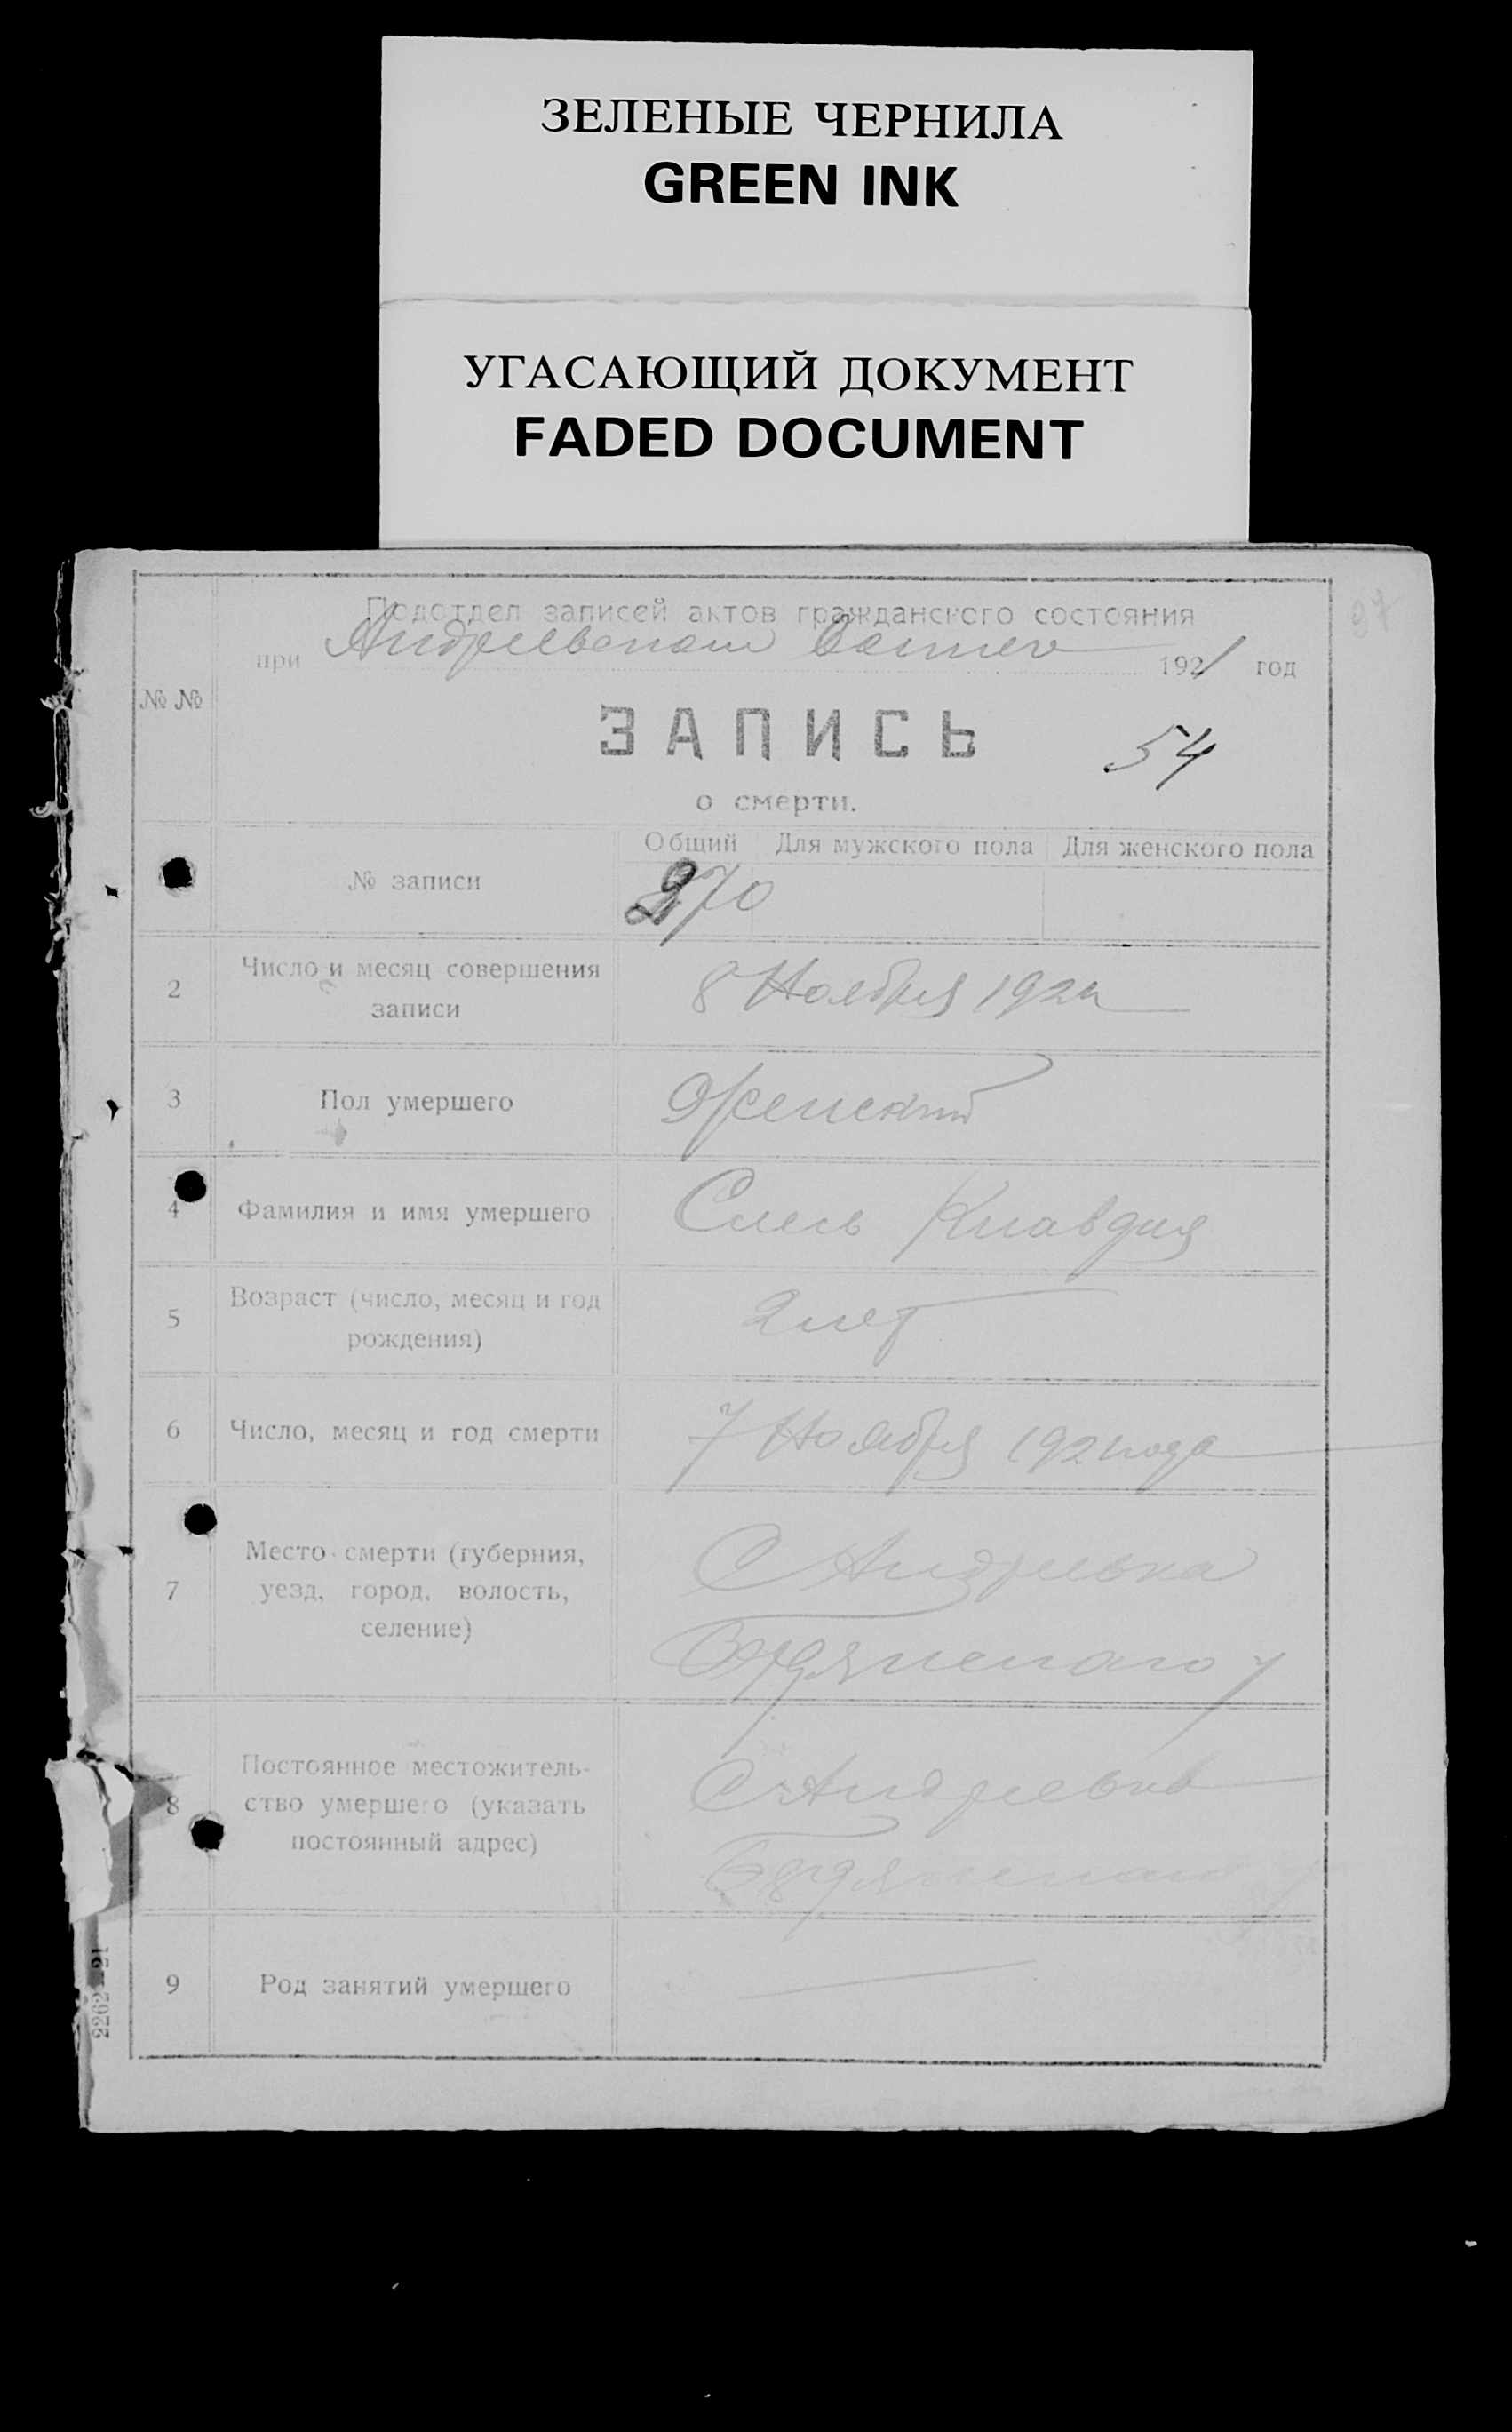 ЗЕЛЕНЫЕ ЧЕРНИЛА
GREEN INK
УГАСАЮЩИЙ ДОКУМЕНТ
FADED DOCUMENT
97
Подотдел записей актов гражданского состояния
при Андреевском 1921 год
№ №
ЗАПИСЬ
54
о смерти.
Общий Для мужского пола Для женского пола
№ записи 270
2 Число и месяц совершения записи 8 Ноября 1921
3 Пол умершего Женский
4 Фамилия и имя умершего Клавдия
5 Возраст (число, месяц и год рождения) 2 лет
6 Число, месяц и год смерти 7 Ноября 1921 года
7 Место смерти (губерния, уезд, город, волость, селение) С Андреевка
у
8 Постоянное местожительство умершего (указать постоянный адрес) С Андреевка
9 Род занятий умершего
2262—21